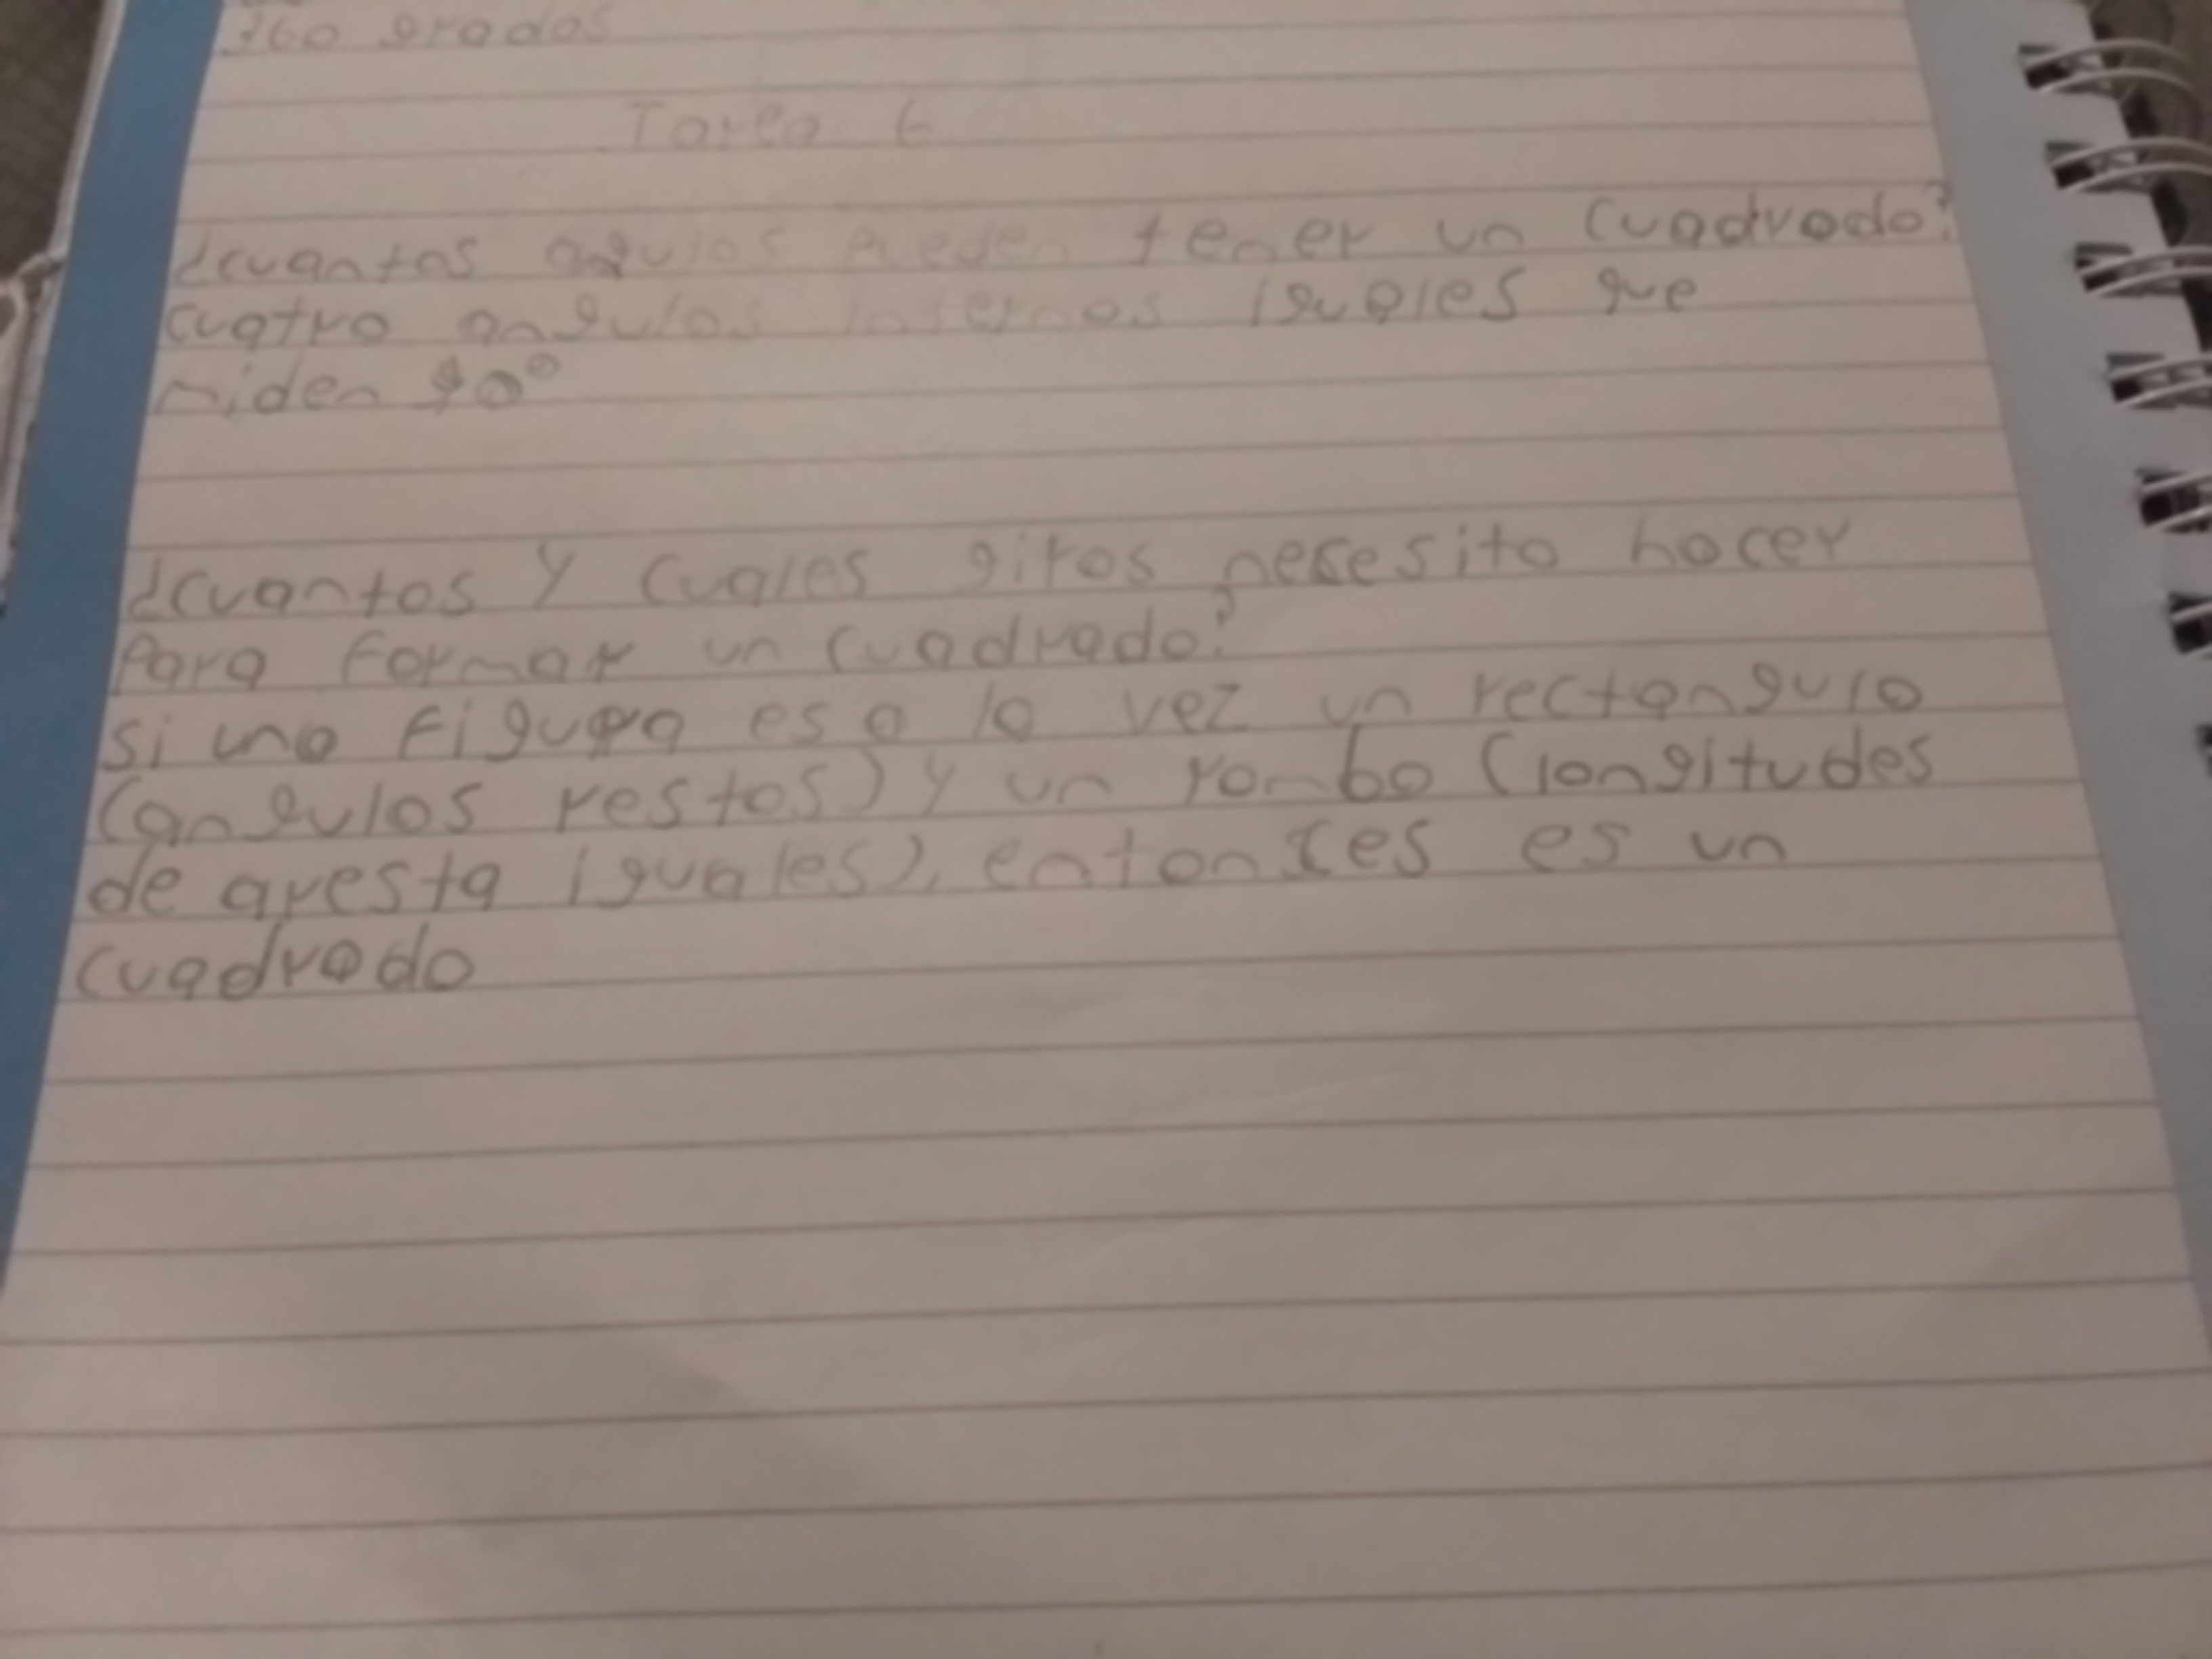 360 grados
Tarea 6
¿cuantos angulos pueden tener un cuadrado?
cuatro angulos internos iguales que
miden 90°
¿cuantos y cuales giros nesesito hacer
para formar un cuadrado?
si una figura es a la vez un rectangulo
(angulos restos) y un rombo (longitudes
de aresta iguales), entonses es un
cuadrado